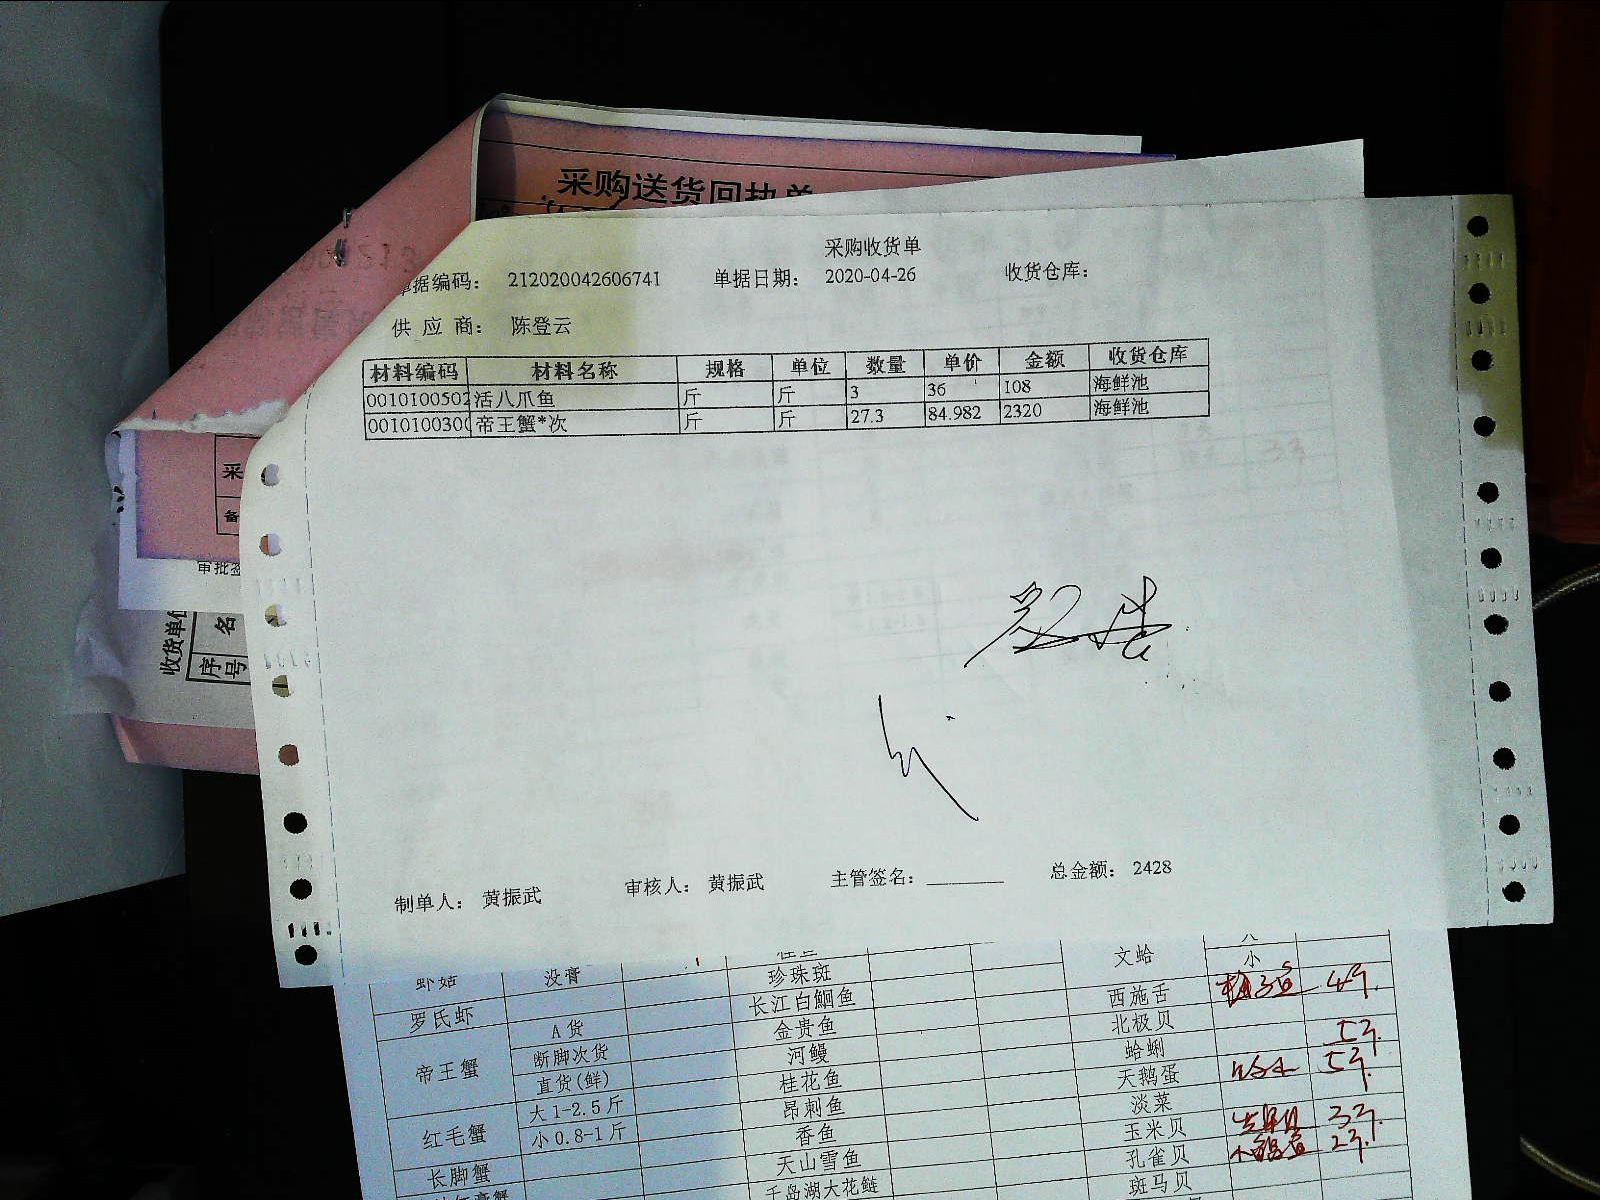 采购送货回执单
采购收货单
单据编码： 212020042606741 单据日期： 2020-04-26 收货仓库：
供 应 商： 陈登云
材料编码 材料名称 规格 单位 数量 单价 金额 收货仓库
0010100502 活八爪鱼 斤 斤 3 36 108 海鲜池
001010030 帝王蟹*次 斤 斤 27.3 84.982 2320 海鲜池
采
备
审批签
收货单位
名
序号
制单人： 黄振武 审核人： 黄振武 主管签名： 总金额： 2428
虾姑 没膏 桂鱼 文蛤 小
珍珠斑
罗氏虾 长江白鮰鱼 西施舌 4斤
帝王蟹 A货 金贵鱼 北极贝
断脚次货 河鳗 蛤蜊
直货(鲜) 桂花鱼 天鹅蛋
红毛蟹 大1-2.5斤 昂刺鱼 淡菜
小0.8-1斤 香鱼 玉米贝 3斤
长脚蟹 天山雪鱼 孔雀贝 2斤
千岛湖大花鲢 斑马贝